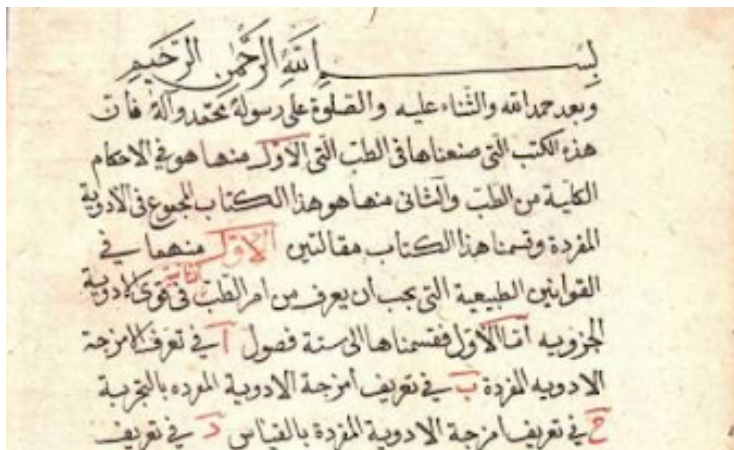 بسم الله الرحمن الرحيم
وبعد حمد الله والثناء عليه والصلوة على رسوله محمد وآله فان
هذه الكتب التى صنعناها فى الطب التى الاول منها هو فى الاحكام
الكلية من الطب والثانى منها هو هذا الكتاب المجموع فى الادوية
المفردة وقسمنا هذا الكتاب مقالتين الاول منهما فى
القوانين الطبيعية التى يجب أن يعرف من امر الطب فى قوى الادوية
الجزويه أما الاول فقسمناها الى ستة فصول آ فى تعرف الامزجة
الادويه المفردة ب فى تعريف أمزجة الادوية المفرده بالتجربة
ج فى تعريف امزجة الادوية المفردة بالقياس د فى تعريف